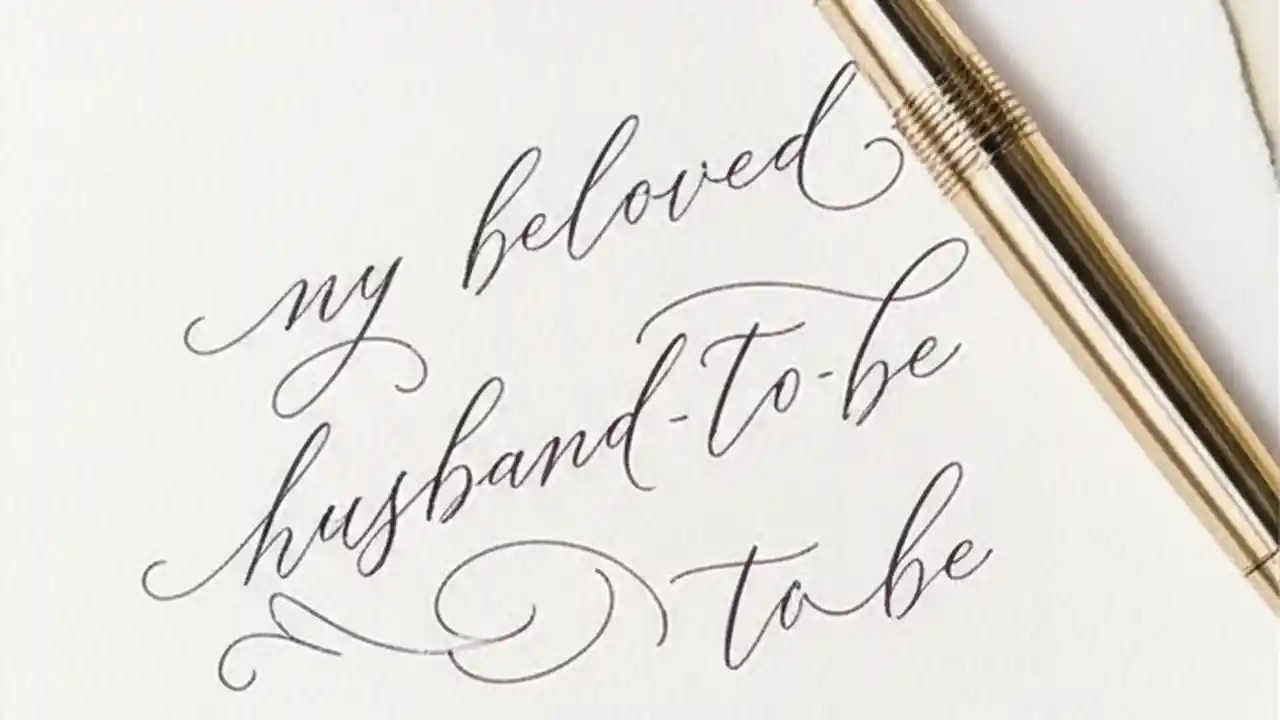 my beloved
husband-to-be
to be